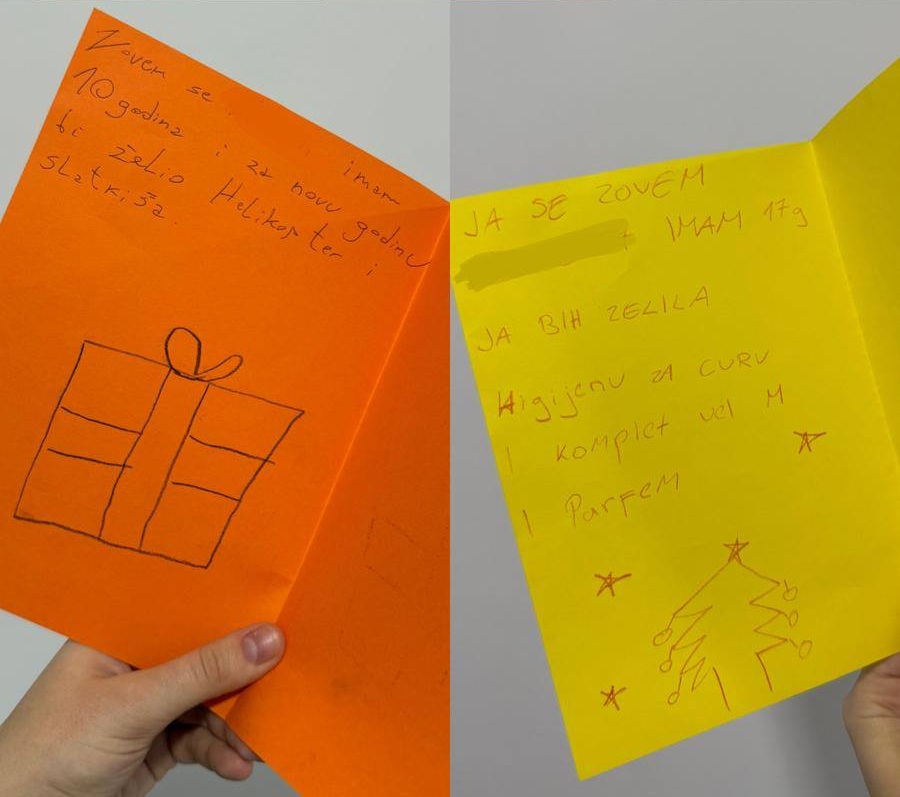 Zovem se
imam
10 godina i za novu godinu
bi želio Helikopter i
slatkiša.
JA SE ZOVEM
IMAM 17g
JA BIH ZELILA
Higijenu ZA CURU
I komplet vel M
I Parfem